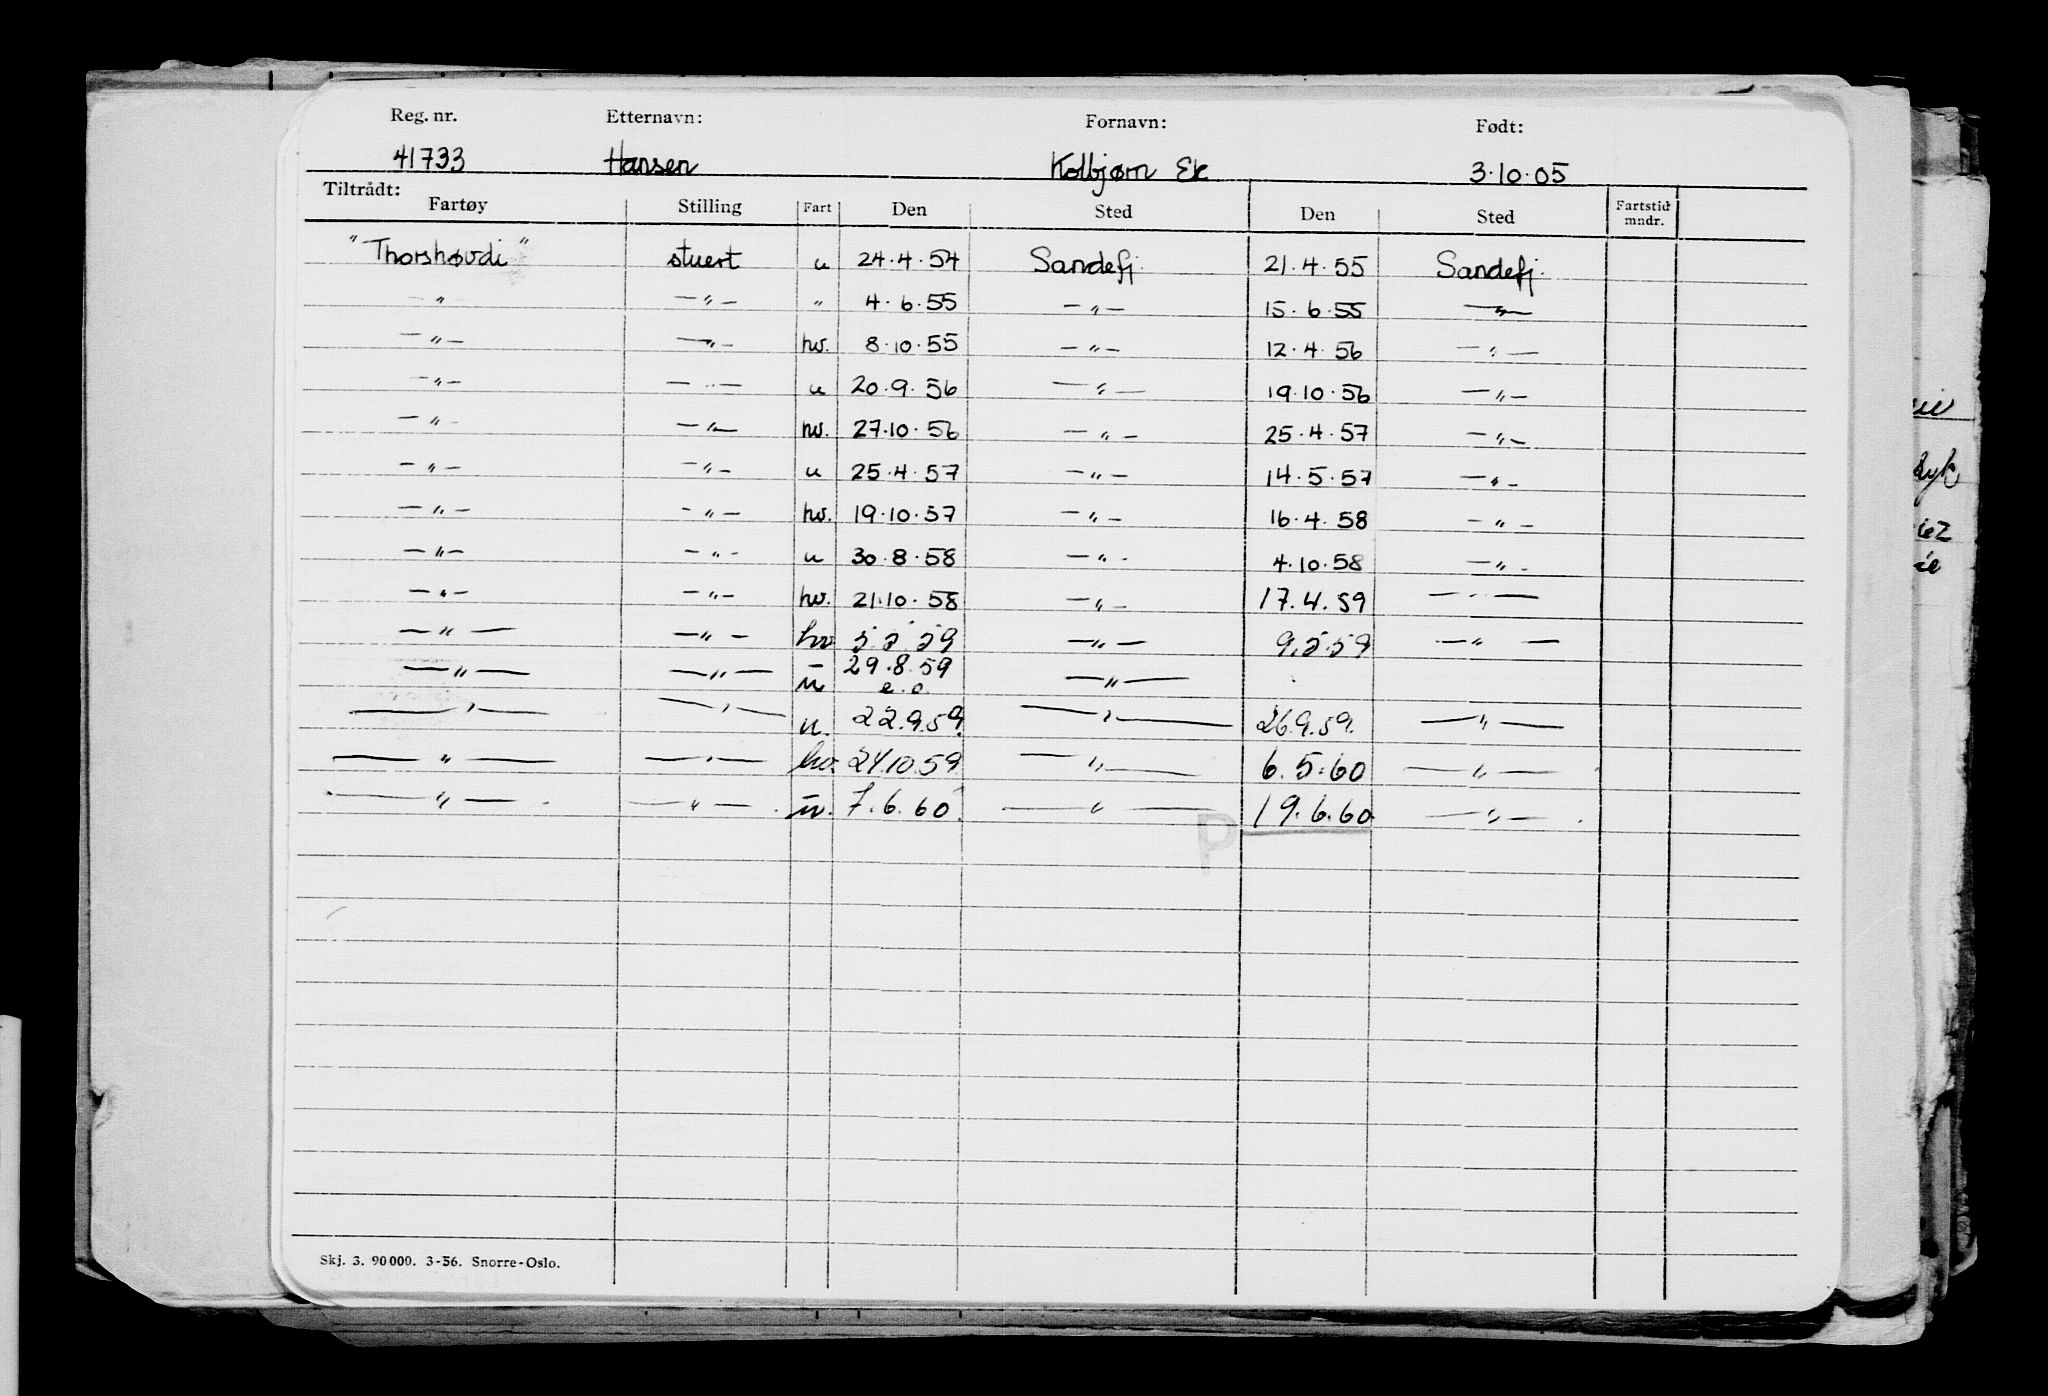 Reg. nr. Etternavn: Fornavn: Født:
41733 Hansen Kolbjørn Ek 3.10.05
Tiltrådt:
Fartøy Stilling Fart Den Sted Den Sted Fartstid mndr.
"Thorshøvdi" stuert u 24.4.54 Sandefj. 21.4.55 Sandefj.
" —"— " 4.6.55 —"— 15.6.55 —"—
—"— —"— hv. 8.10.55 —"— 12.4.56 —"—
—"— —"— u 20.9.56 —"— 19.10.56 —"—
—"— —"— hv. 27.10.56 —"— 25.4.57 —"—
—"— —"— u 25.4.57 —"— 14.5.57 —"—
—"— —"— hv. 19.10.57 —"— 16.4.58 —"—
—"— —"— u 30.8.58 —"— 4.10.58 —"—
—"— —"— hv. 21.10.58 —"— 17.4.59 —"—
—"— —"— hv 5.5.59 —"— 9.5.59 —"—
—"— —"— u 29.8.59 —"—
e.o.
—"— —"— u. 22.9.59. —"— 26.9.59. —"—
—"— —"— hv. 24.10.59 —"— 6.5.60 —"—
—"— —"— u. 7.6.60. —"— 19.6.60. —"—
P
Skj. 3. 90000. 3-56. Snorre-Oslo.